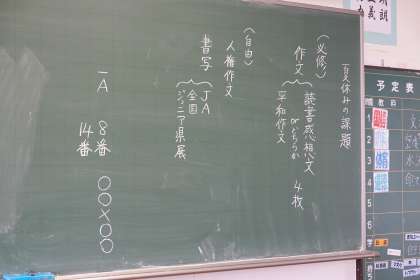 夏休みの課題
（必修）
作文
読書感想文
orどちらか
平和作文
4枚
（自由）
人権作文
書写
JA
全国
ジュニア県展
一A
8番
14番
〇〇×〇〇
予定表
教科
1
2
3
4
5
6